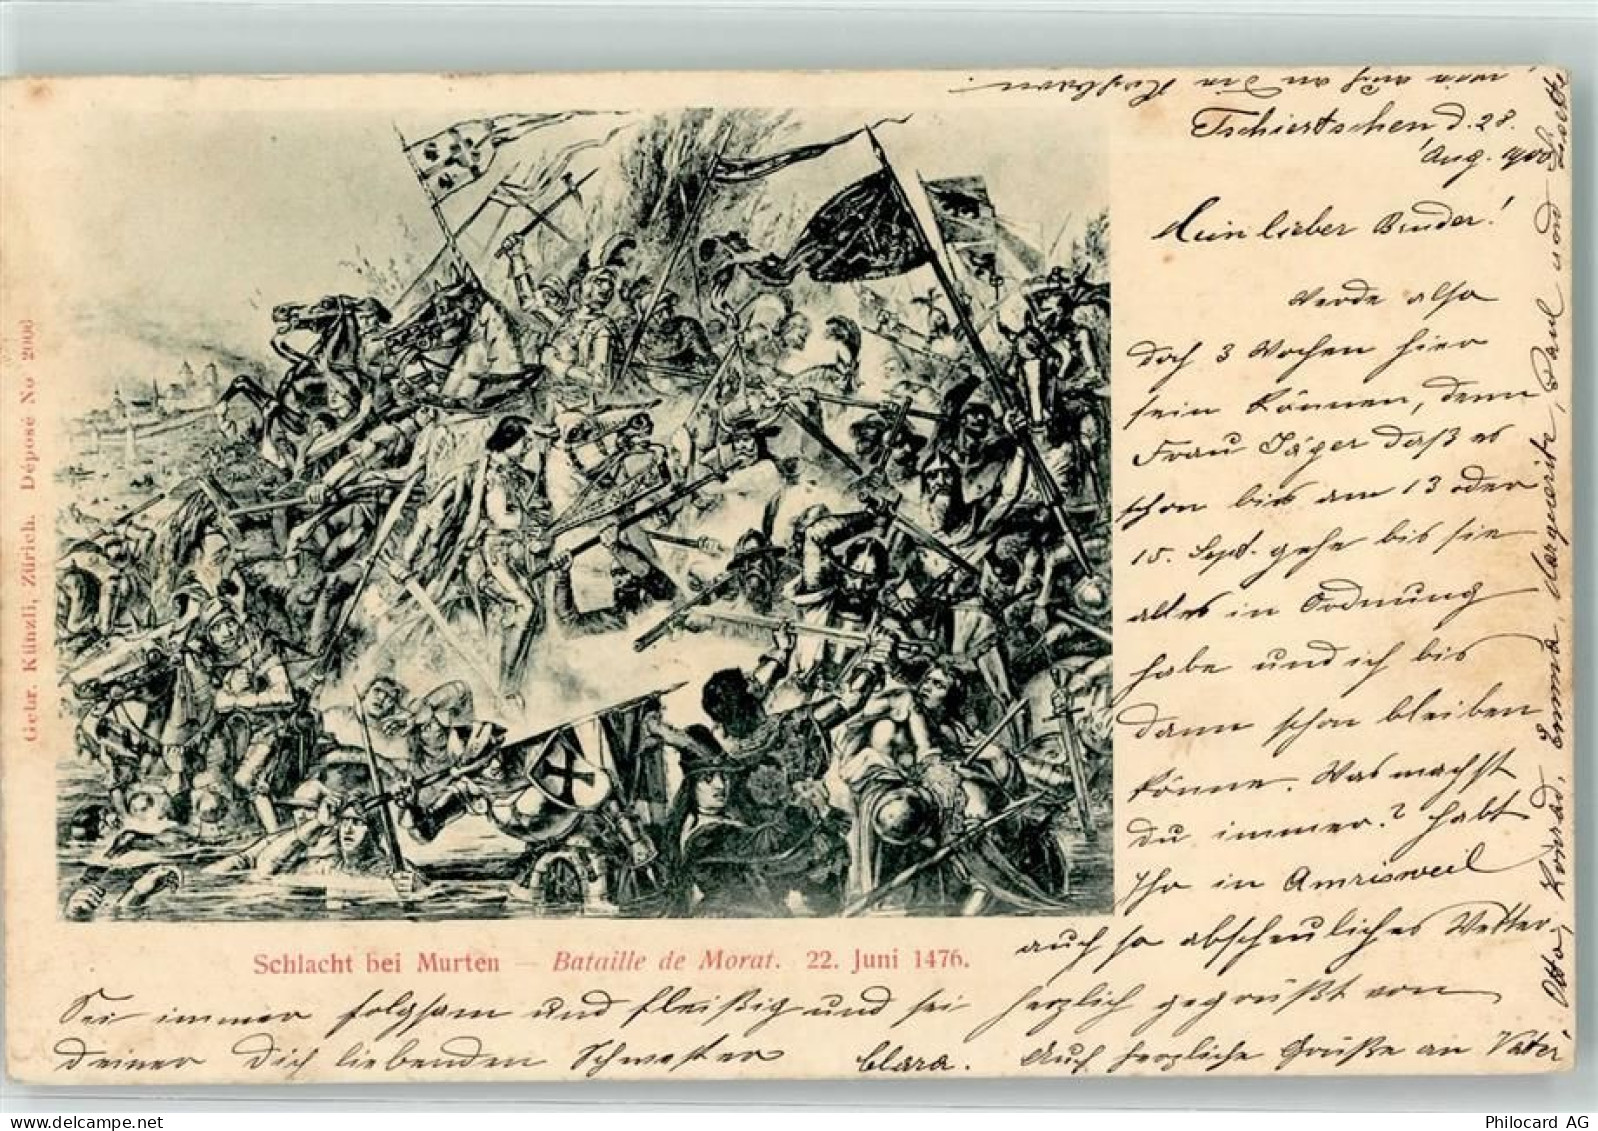 Tschiertschen d. 28.
Aug. 1900
Mein lieber Bruder!
Werde also
doch 3 Wochen hier
sein können, denn
Frau Jäger daß es
schon bis am 13 oder
15. Sept. gehe bis sie
alles in Ordnung
habe und ich bis
dann schon bleiben
könne. Was machst
Du immer? Habt
Ihr in Amrisweil
auch so abscheuliches Wetter.
Sei immer folgsam und fleißig und sei herzlich gegrüßt von
deiner Dich liebenden Schwester Clara. Auch herzliche Grüße an Vater,
Otto, Konrad, Emma, Margerite, Paul und Lisette
wie auch an die
Schlacht bei Murten — Bataille de Morat. 22. Juni 1476.
Getr. Künzli, Zürich. Déposé No 2006
Philocard AG